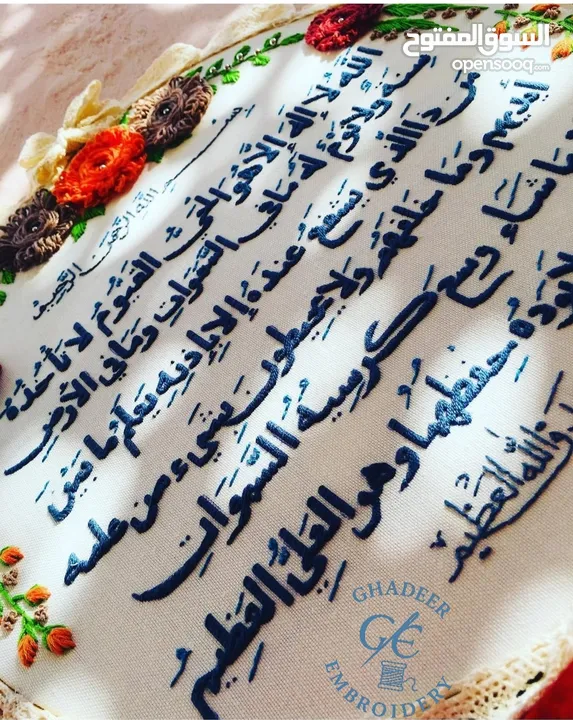 السوق المفتوح
opensooq.com
بسم الله الرحمن الرحيم
الله لا اله الا هو الحيُّ القيومُ لا تأخذهُ
سنة ولا نومٌ له ما في السمواتِ وما في الأرضِ
من ذا الذي يشفع عندهُ إلا بإذنهِ يعلم ما بين
أيديهم وما خلفهم ولا يحيطون بشيءٍ من علمه
بما شاء وسع كرسيهُ السمواتِ
يؤدهُ حفظهما وهو العليُّ العظيمُ
الله العظيم
GHADEER
GE
EMBROIDERY